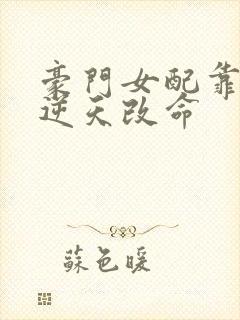 豪門女配靠
逆天改命
蘇色暖